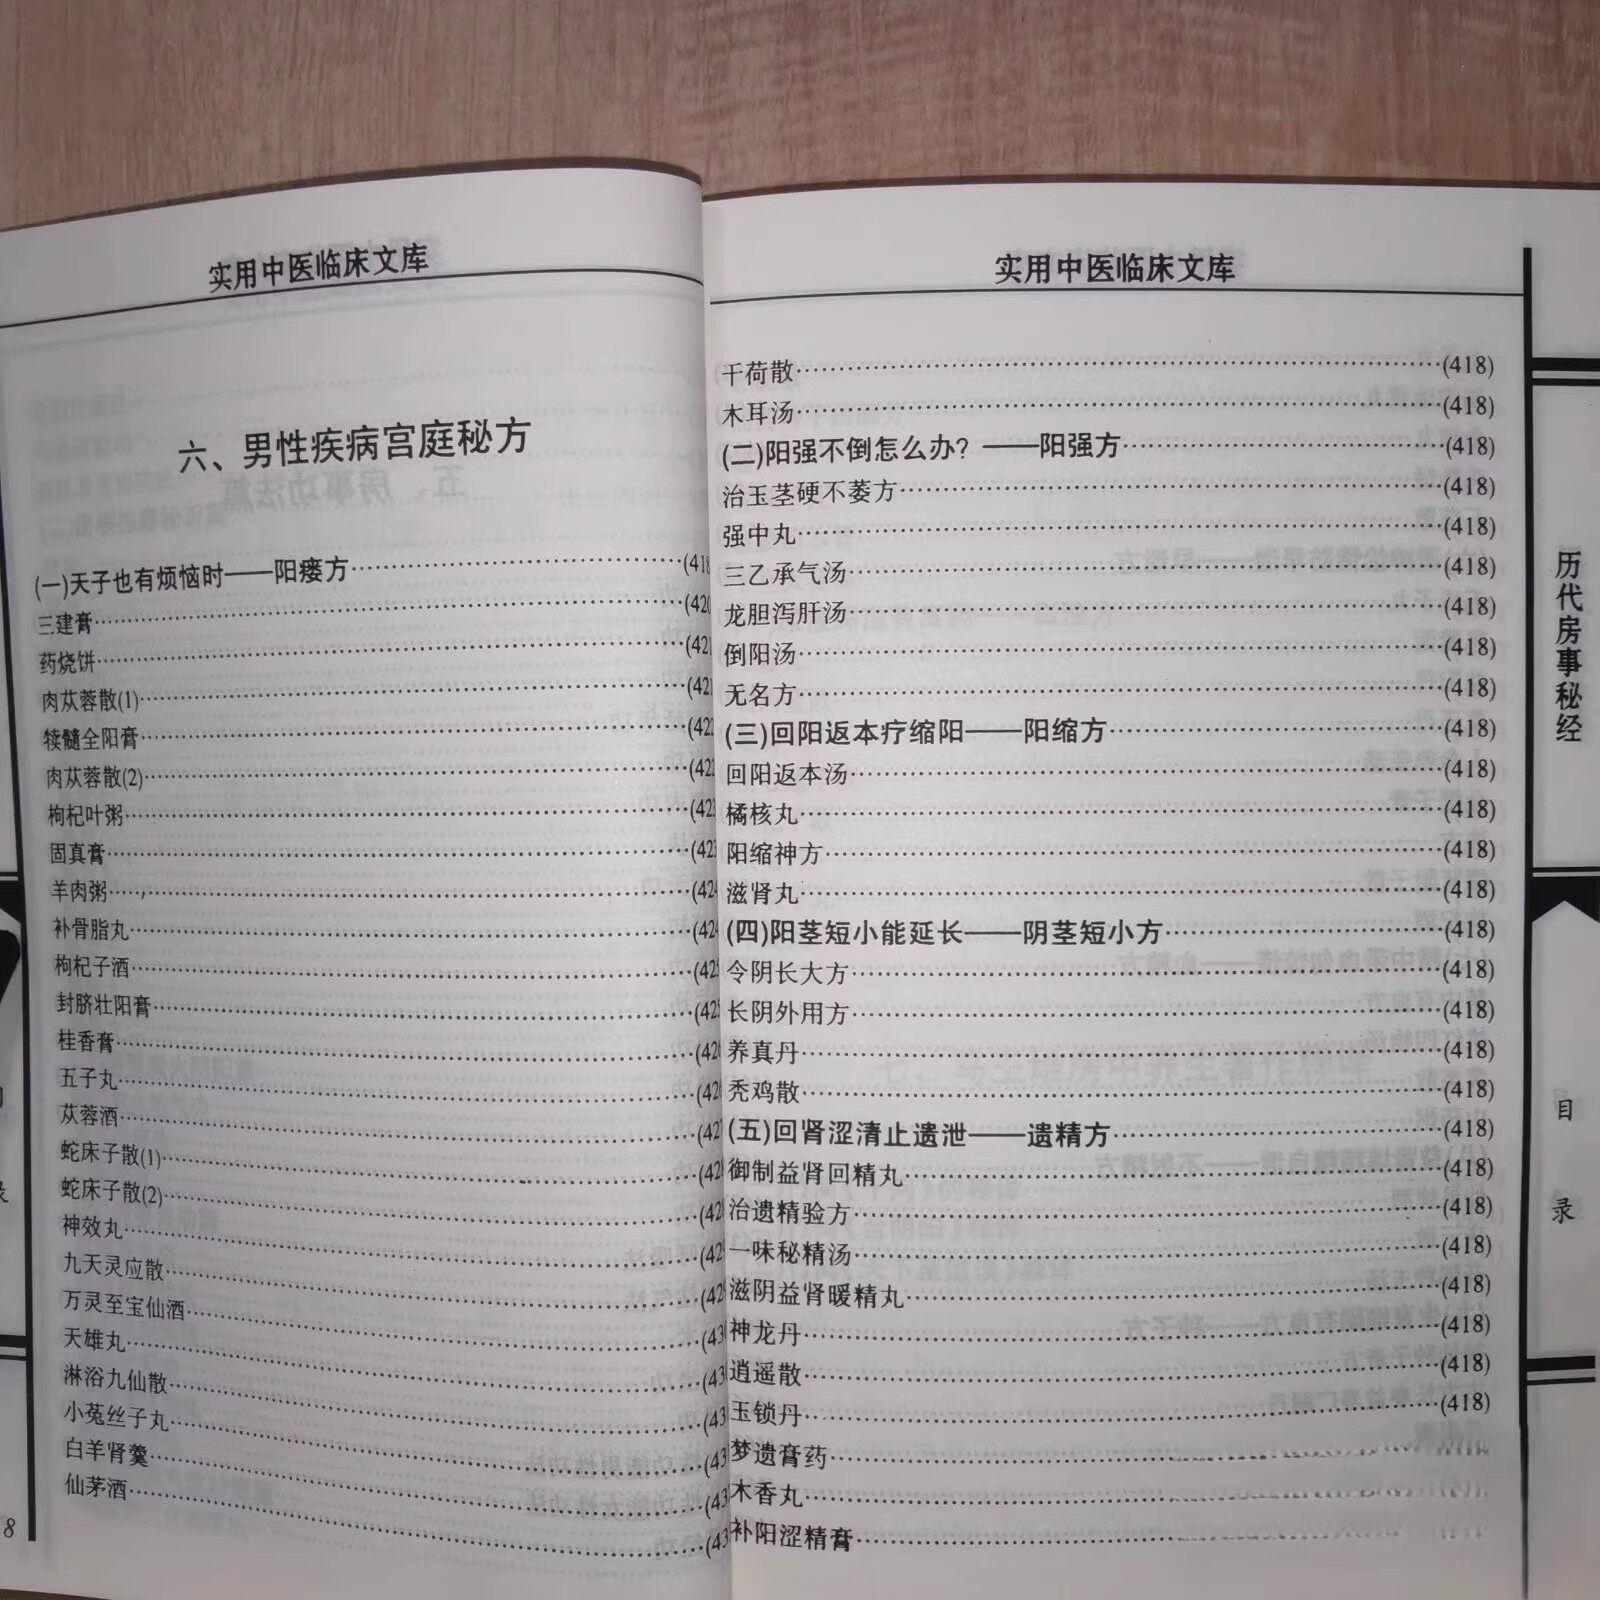 实用中医临床文库
六、男性疾病宫庭秘方
(一)天子也有烦恼时——阳痿方……(418
三建膏……(420
药烧饼……(421
肉苁蓉散(1)……(421
犊髓全阳膏……(422
肉苁蓉散(2)……(422
枸杞叶粥……(423
固真膏……(423
羊肉粥……(424
补骨脂丸……(424
枸杞子酒……(425
封脐壮阳膏……(425
桂香膏……(426
五子丸……(426
苁蓉酒……(427
蛇床子散(1)……(42
蛇床子散(2)……(42
神效丸……(42
九天灵应散……(42
万灵至宝仙酒……(43
天雄丸……(43
淋浴九仙散……(43
小菟丝子丸……(43
白羊肾羹……(43
仙茅酒……(43
8
实用中医临床文库
干荷散……(418)
木耳汤……(418)
(二)阳强不倒怎么办?——阳强方……(418)
治玉茎硬不萎方……(418)
强中丸……(418)
三乙承气汤……(418)
龙胆泻肝汤……(418)
倒阳汤……(418)
无名方……(418)
(三)回阳返本疗缩阳——阳缩方……(418)
回阳返本汤……(418)
橘核丸……(418)
阳缩神方……(418)
滋肾丸……(418)
(四)阳茎短小能延长——阴茎短小方……(418)
令阴长大方……(418)
长阴外用方……(418)
养真丹……(418)
秃鸡散……(418)
(五)回肾涩清止遗泄——遗精方……(418)
御制益肾回精丸……(418)
治遗精验方……(418)
一味秘精汤……(418)
滋阴益肾暖精丸……(418)
神龙丹……(418)
逍遥散……(418)
玉锁丹……(418)
梦遗膏药……
木香丸……
补阳涩精膏……
历代房事秘经
目录